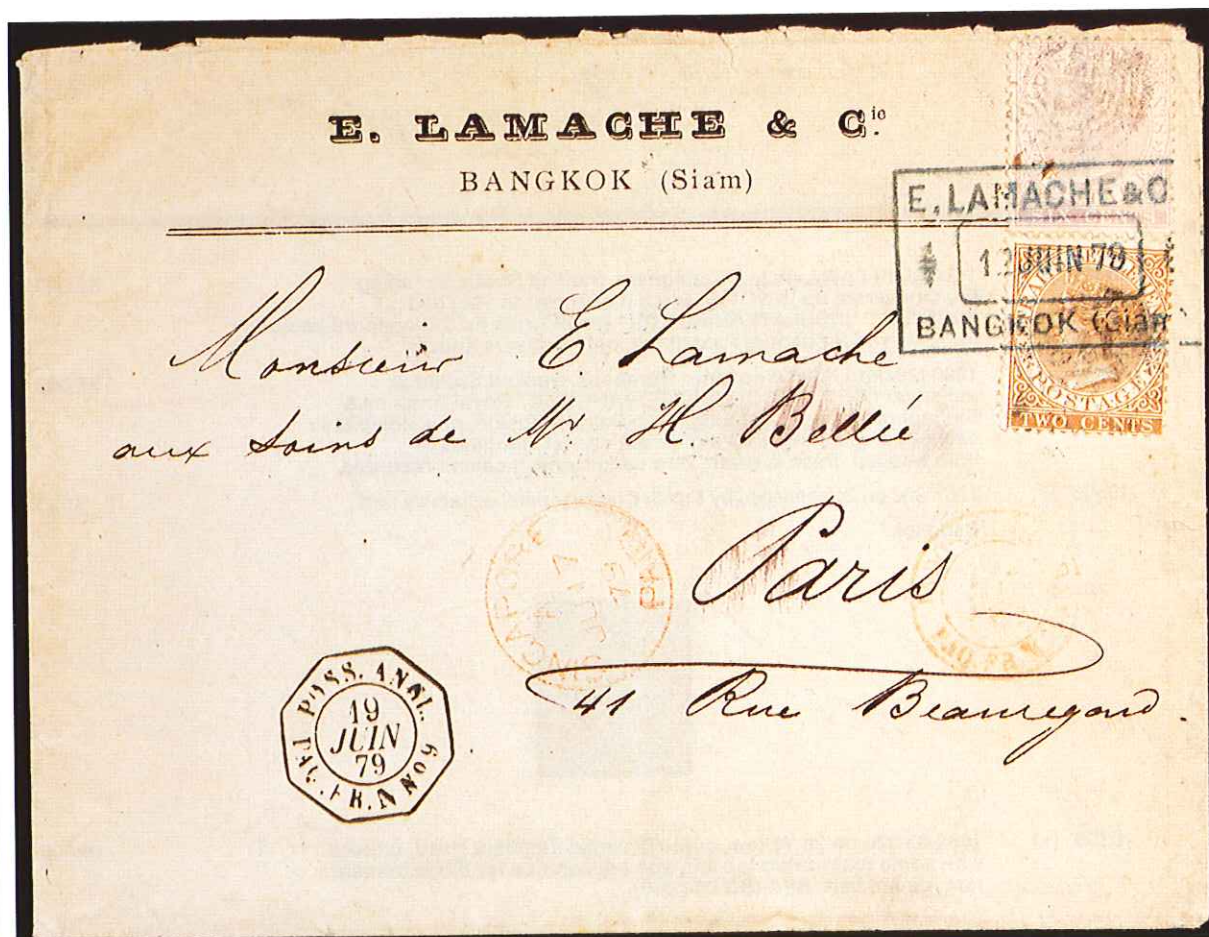 E. LAMACHE & Cie.
BANGKOK (Siam)
E. LAMACHE & C
12 JUIN 79
BANGKOK (Siam
POSTAGE
TWO CENTS
Monsieur E. Lamache
aux soins de Mr H. Bellié
Paris
41 Rue Beauregard.
SINGAPORE PAID
JU 17
79
POSS. ANGL.
19
JUIN
79
PAQ. FR. N No 9
PAQ. FR. N